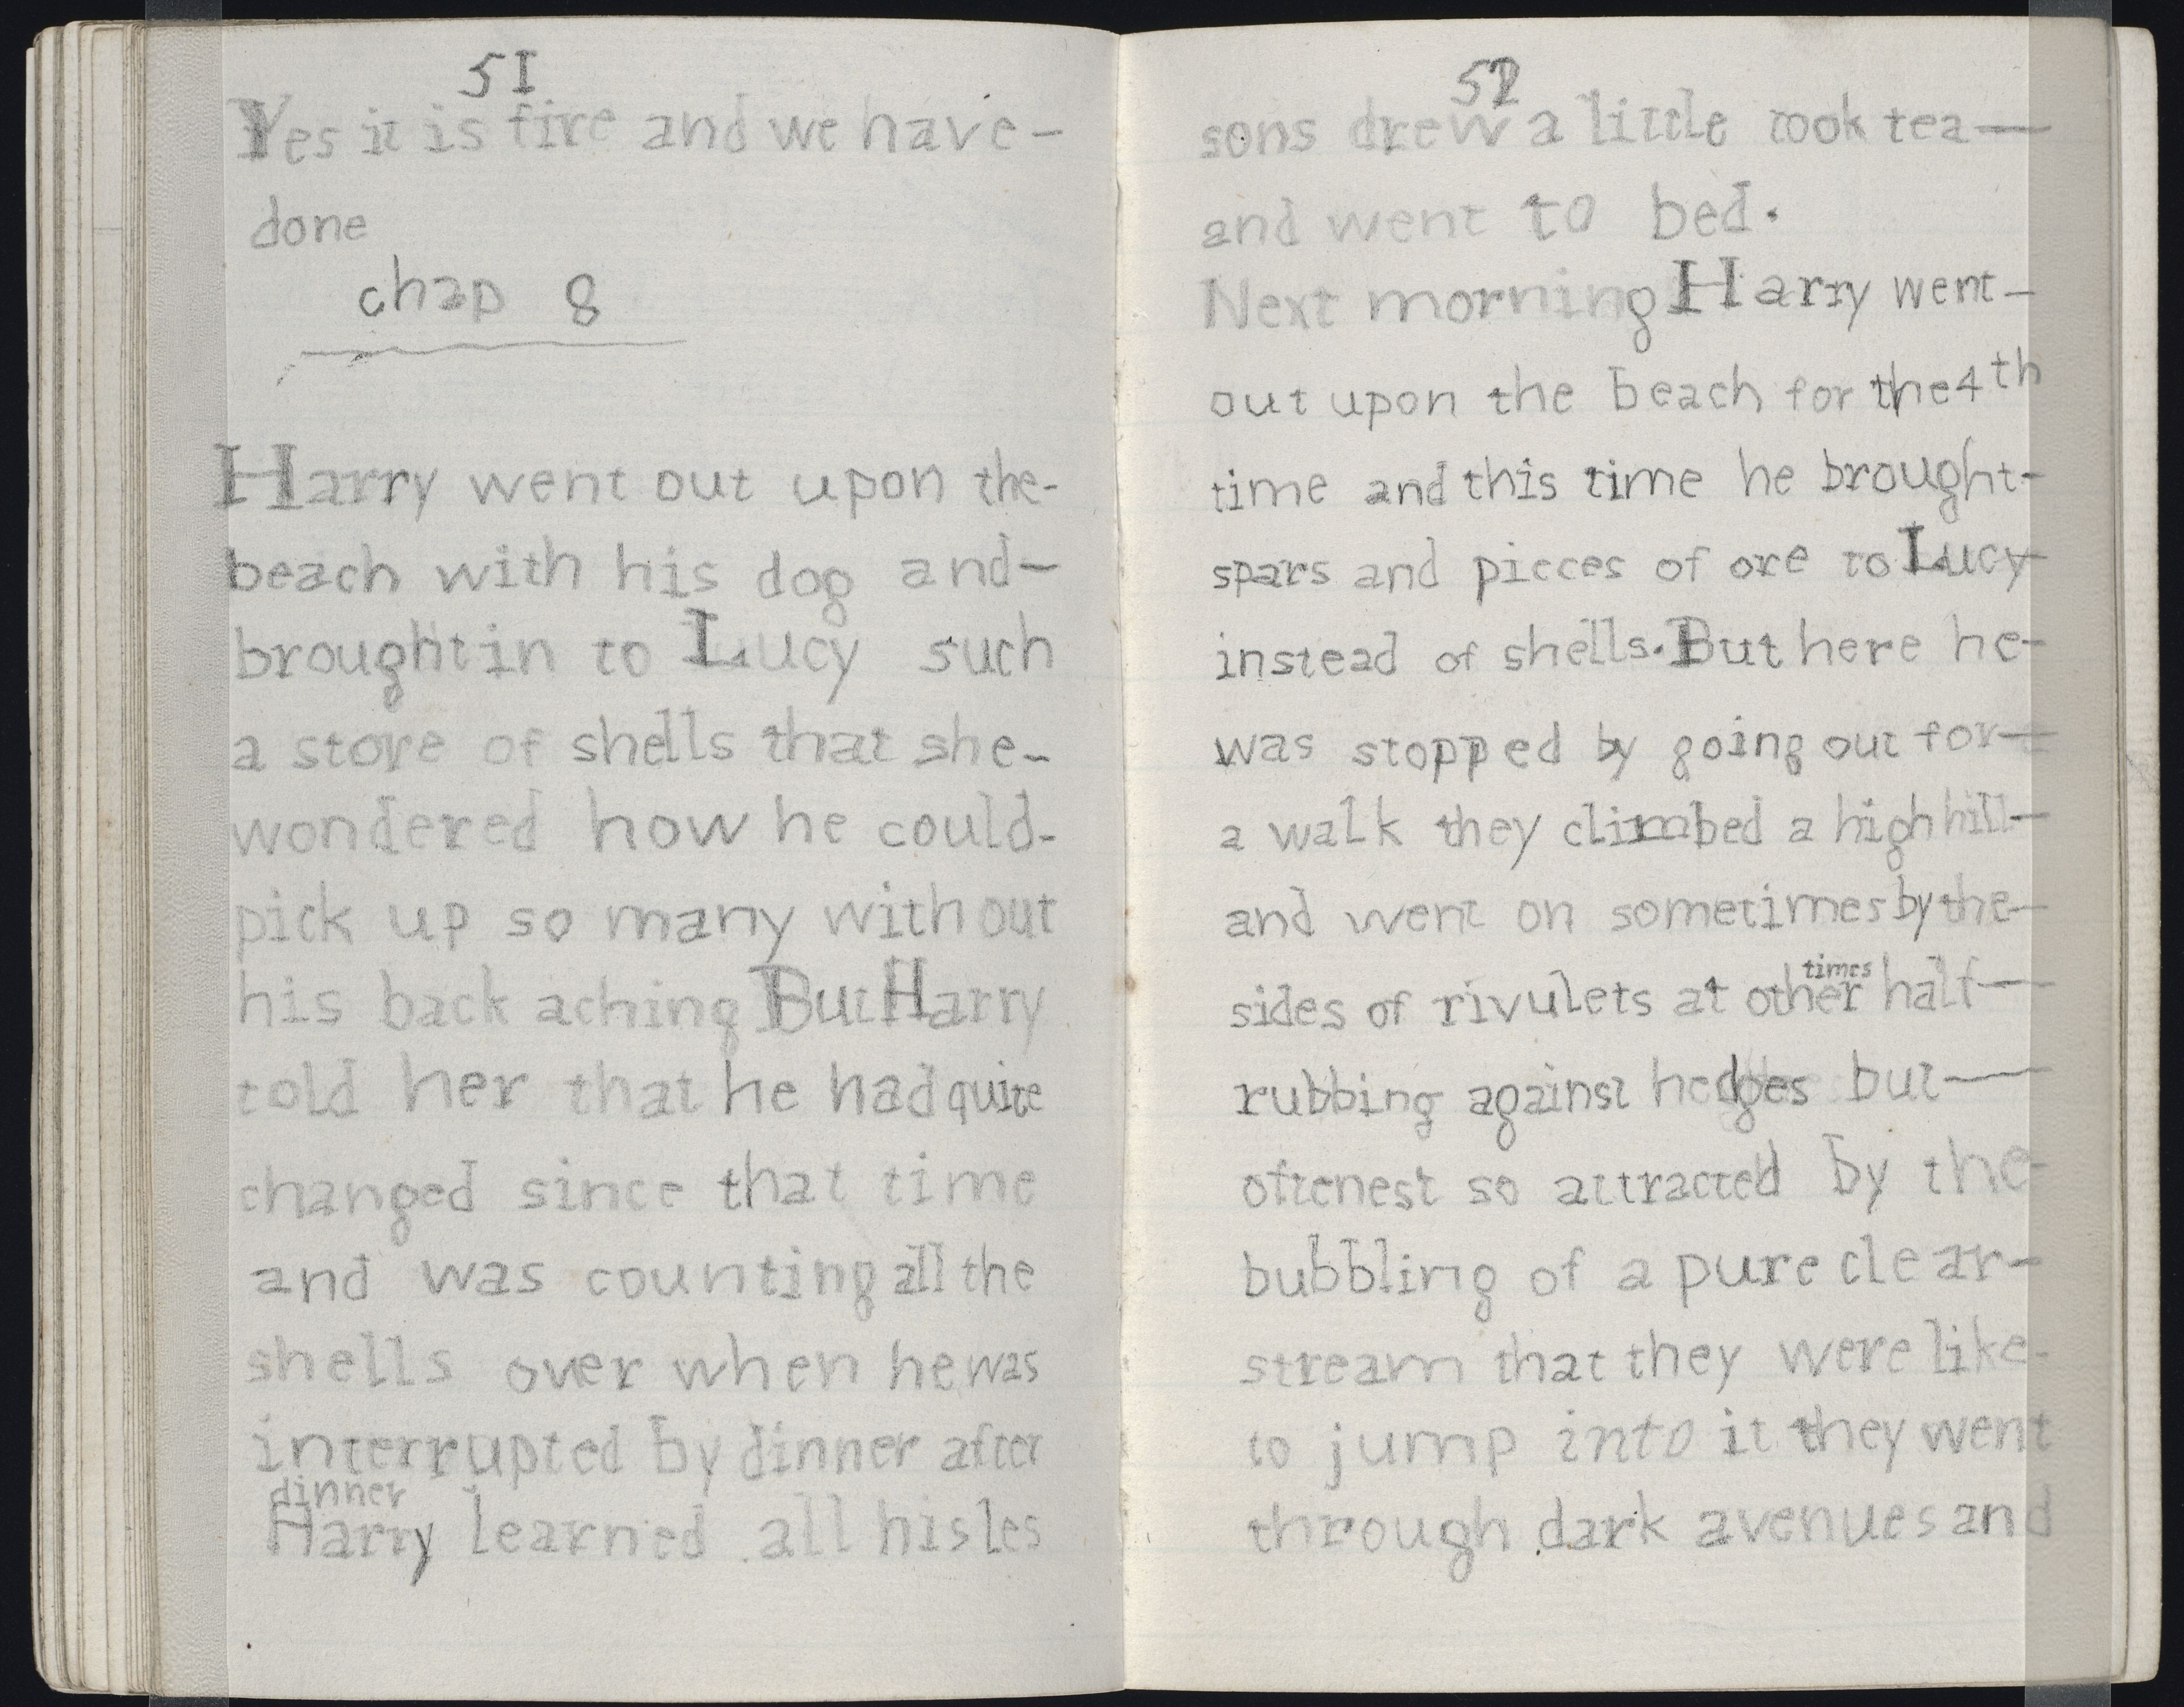 51
Yes it is fire and we have-
done
chap 8
Harry went out upon the-
beach with his dog and-
brought in to Lucy such
a store of shells that she-
wondered how he could-
pick up so many without
his back aching But Harry
told her that he had quite
changed since that time
and was counting all the
shells over when he was
interrupted by dinner after
dinner
Harry learned all his les
52
sons drew a little took tea-
and went to bed.
Next morning Harry went-
out upon the beach for the 4th
time and this time he brought-
spars and pieces of ore to Lucy-
instead of shells. But here he-
was stopped by going out for-
a walk they climbed a high hill-
and went on sometimes by the-
times
sides of rivulets at other half-
rubbing against hedges but-
oftenest so attracted by the-
bubbling of a pure clear-
stream that they were like-
to jump into it they went
through dark avenues and